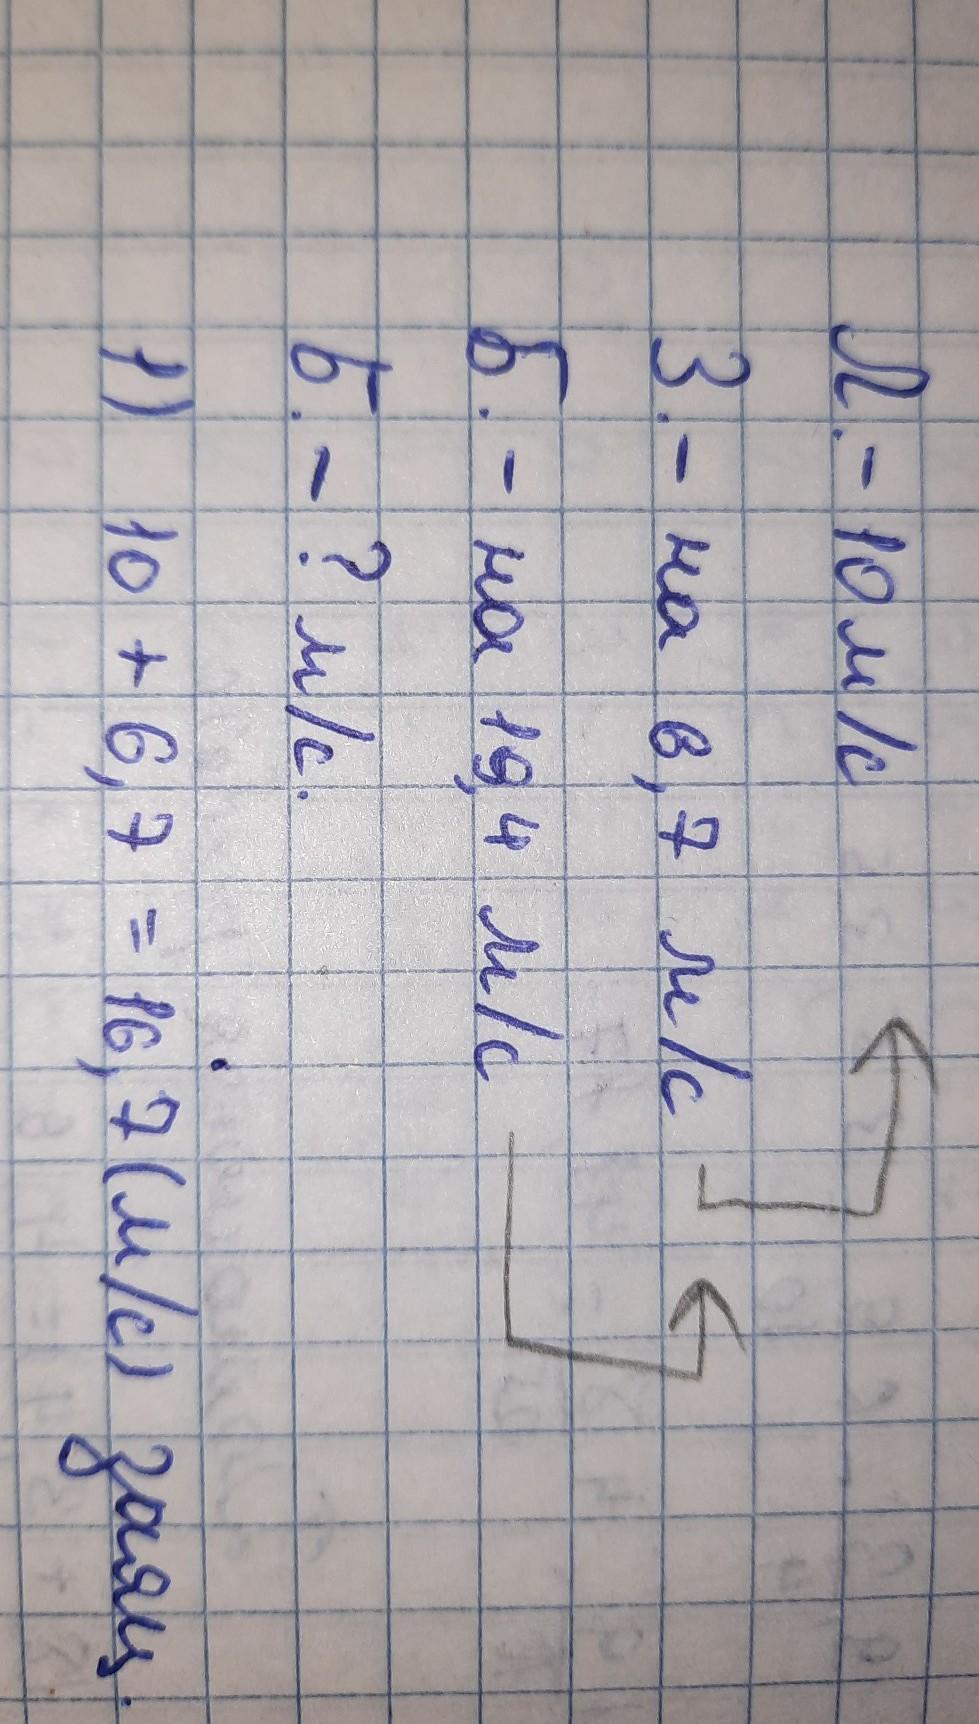 Л. - 10 м/с
З. - на 6,7 м/с
Б. - на 19,4 м/с
Б. - ? м/с.
1) 10 + 6,7 = 16,7 (м/с) заяц.